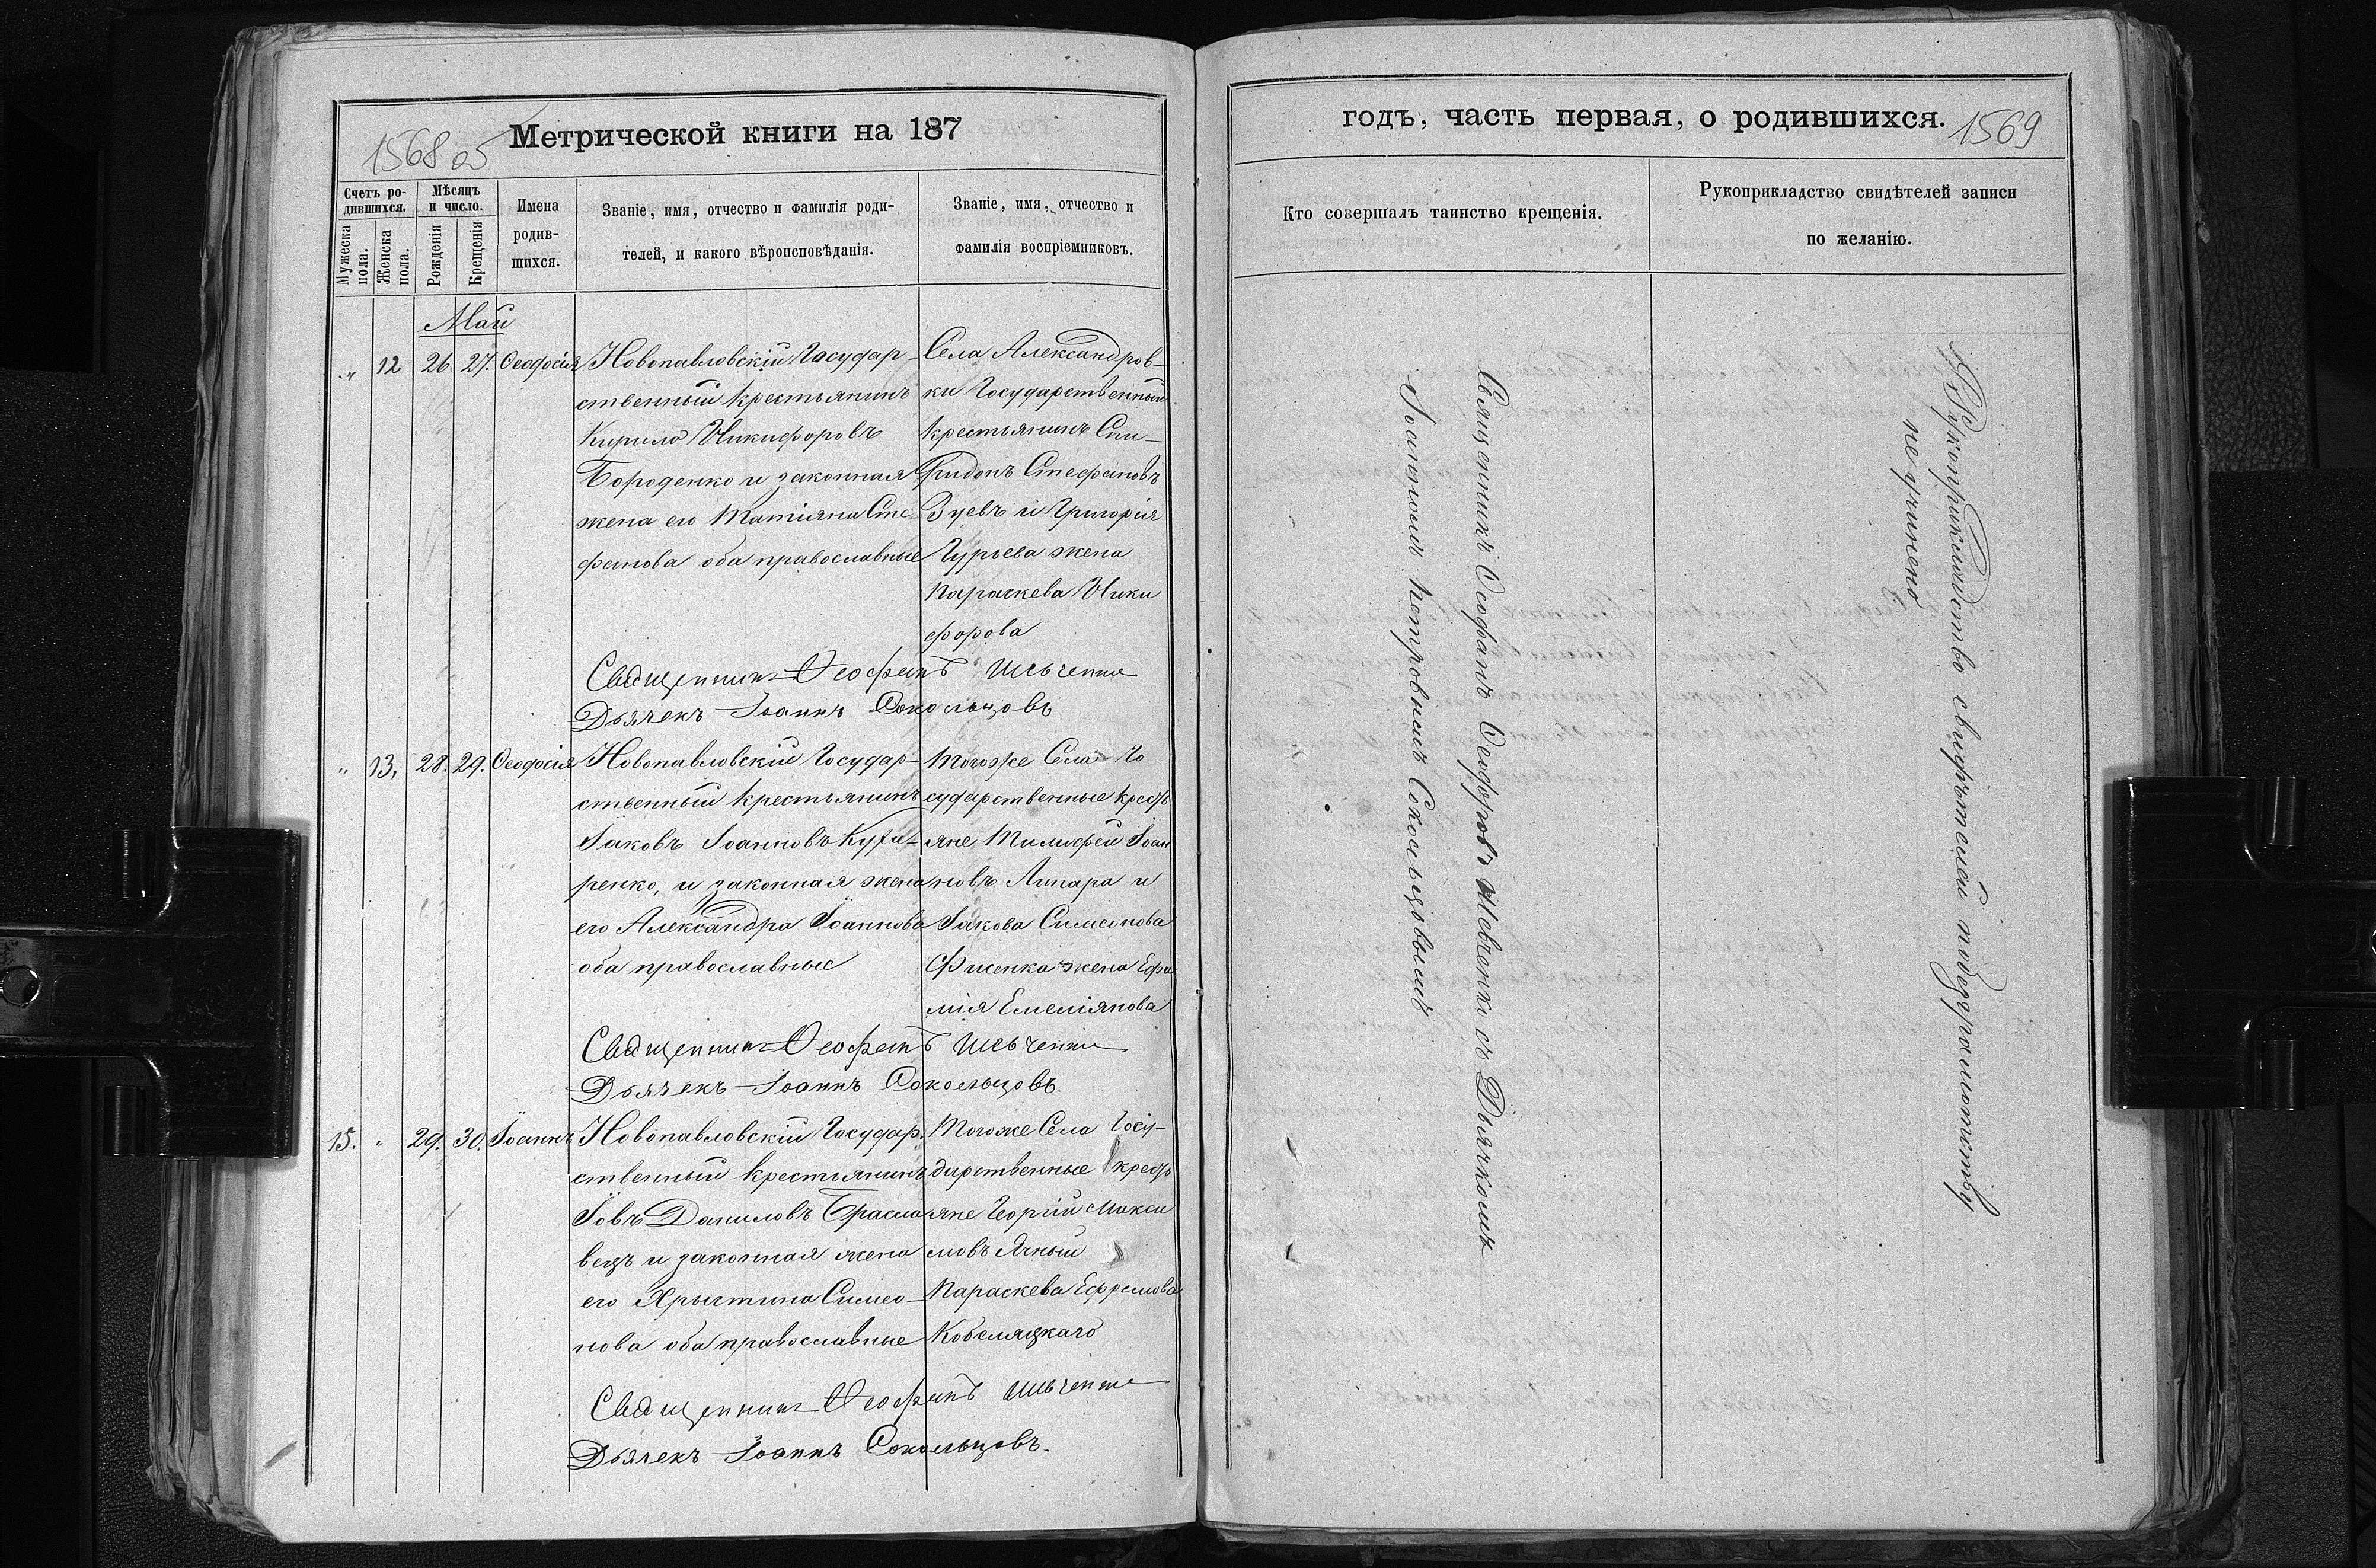 1568 об
Метрической книги на 187
Счетъ ро-
дившихся.
Мужеска пола.
Женска пола.
Мѣсяцъ
и число.
Рожденія
Крещенія
Имена
родив-
шихся.
Званіе, имя, отчество и фамилія роди-
телей, и какого вѣроисповѣданія.
Званіе, имя, отчество и
фамилія воспріемниковъ.
Май
„ 12 26 27. Ѳеодосія
Новопавловскій Государ-
ственный крестьянинъ
Кирило Никифоровъ
Бороденко и законная
жена его Татіяна Сте-
фанова оба православные
Села Александров-
ки Государственный
крестьянинъ Спи-
ридонъ Стефановъ
Зуевъ и Григорія
Гурьева жена
Параскева Ники
форова
Священникъ Ѳеофанъ Шевченко
Дьячекъ Іоаннъ Сокольцовъ
„ 13, 28. 29. Ѳеодосія
Новопавловскій Государ-
ственный крестьянинъ
Іаковъ Іоанновъ Куха-
ренко, и законная жена
его Александра Іоаннова
оба православные
Тогоже Села Го
сударственные кресть
яне, Тимофей Іоан
новъ Липара и
Іакова Симеонова
Фисенка жена Ефи
мія Емеліянова
Священникъ Ѳеофанъ Шевченко
Дьячекъ Іоаннъ Сокольцовъ.
15. „ 29. 30. Іоаннъ
Новопавловскій Государ.
ственный крестьянинъ
Іовъ Даниловъ Брасла
вецъ и законная жена
его Хрыстина Симео-
нова оба православные
Тогоже Села Госу-
дарственные кресть
яне Георгій Макси
мовъ Ячный
Параскева Ефремова
Кобеляцкаго
Священникъ Ѳеофанъ Шевченко
Дьячекъ Іоаннъ Сокольцовъ.
годъ, часть первая, о родившихся.
1569
Кто совершалъ таинство крещенія.
Рукоприкладство свидѣтелей записи
по желанію.
Священникъ Ѳеофанъ Ѳеодоровъ Шевченко съ Дьячкомъ
Іоанномъ Петровымъ Сокольцовымъ
Рукоприкладство свидѣтелей по безграмотству
не учинено